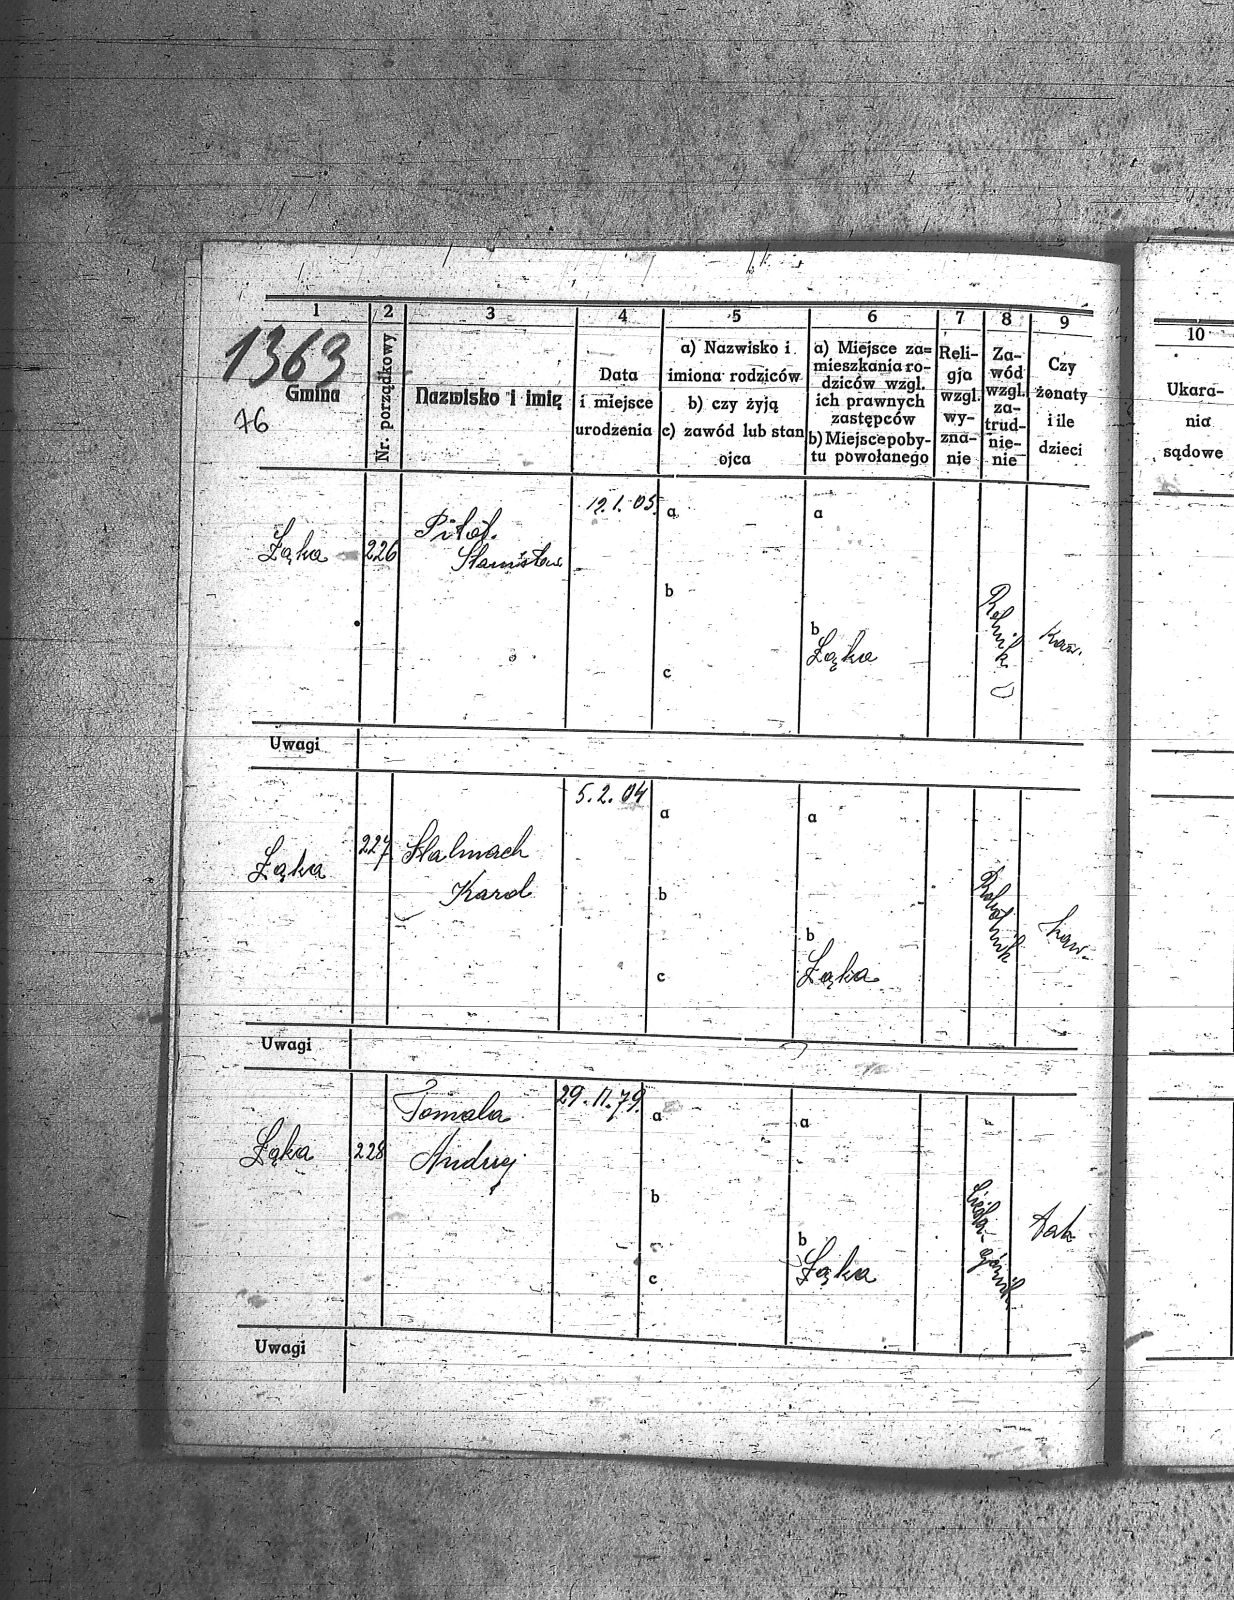 1 2 3 4 5 6 7 8 9
1363
Gmina
76
Nr. porządkowy
Nazwisko i imię
Data
i miejsce
urodzenia
a) Nazwisko i
imiona rodziców
b) czy żyją
c) zawód lub stan
ojca
a) Miejsce za=
mieszkania ro-
dziców wzgl.
ich prawnych
zastępców
b) Miejsce poby-
tu powołanego
Reli-
gja
wzgl.
wy-
zna-
nie
Za-
wód
wzgl.
za-
trud-
nie-
nie
Czy
żonaty
i ile
dzieci
10
Ukara-
nia
sądowe
Łąka 226
Stanisław
12.1.05.
a
b
c
a
b
Łąka
Rolnik
Kaw.
Uwagi
Łąka 227 Stalmach
Karol
5.2.04
a
b
c
a
b
Łąka
Robotnik
kaw.
Uwagi
Łąka 228
Tomala
Andrzej
29.11.79.
a
b
c
a
b
Łąka
Tak
Uwagi